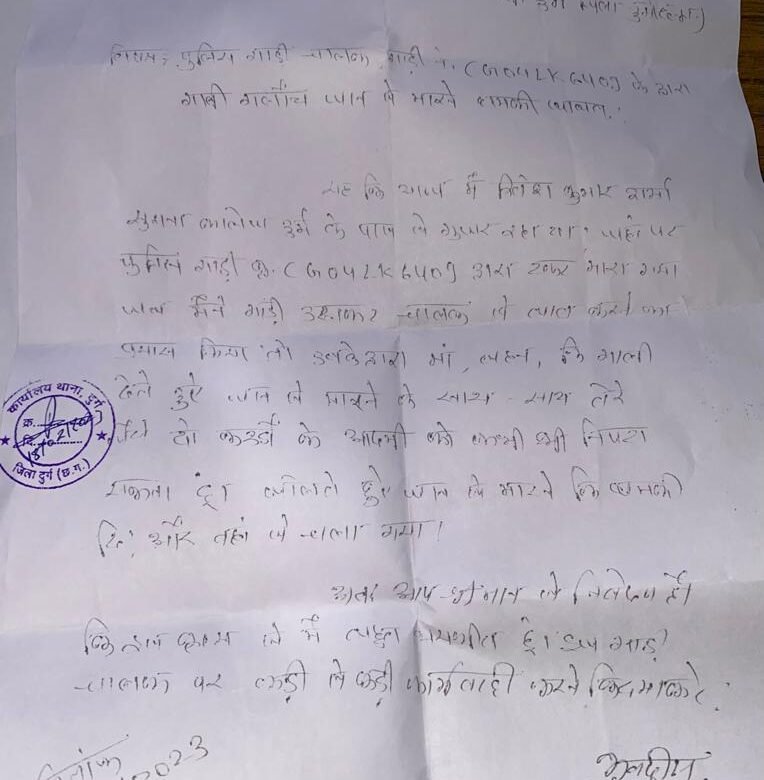 विषय: पुलिस गाड़ी चालक गाड़ी नं. (CG04ZK6409) के द्वारा
गाली गलौच जान से मारने धमकी बाबत्।
यह कि आज मैं शर्मा
कालेज दुर्ग के पास से गुजर रहा था। जहां पर
पुलिस गाड़ी क्र. (CG04ZK6409) द्वारा टक्कर मारा गया
जब मैंने गाड़ी उठाकर चालक से बात करने का
प्रयास किया तो उनके द्वारा मां, बहन, कि गाली
देते हुए जान से मारने के साथ-साथ तेरे
जैसे दो कौड़ी के आदमी को कभी भी निपटा
सकता हूं। बोलते हुए जान से मारने कि धमकी
दि, और वहां से चला गया।
अतः आप श्रीमान से निवेदन है।
कि इस से मैं बहुत भयभीत हूं। इस गाड़ी
चालक पर कड़ी से कड़ी कार्यवाही करने कि
दिनांक
2023
कार्यालय थाना, दुर्ग
क्र.
दि.
जिला दुर्ग (छ.ग.)